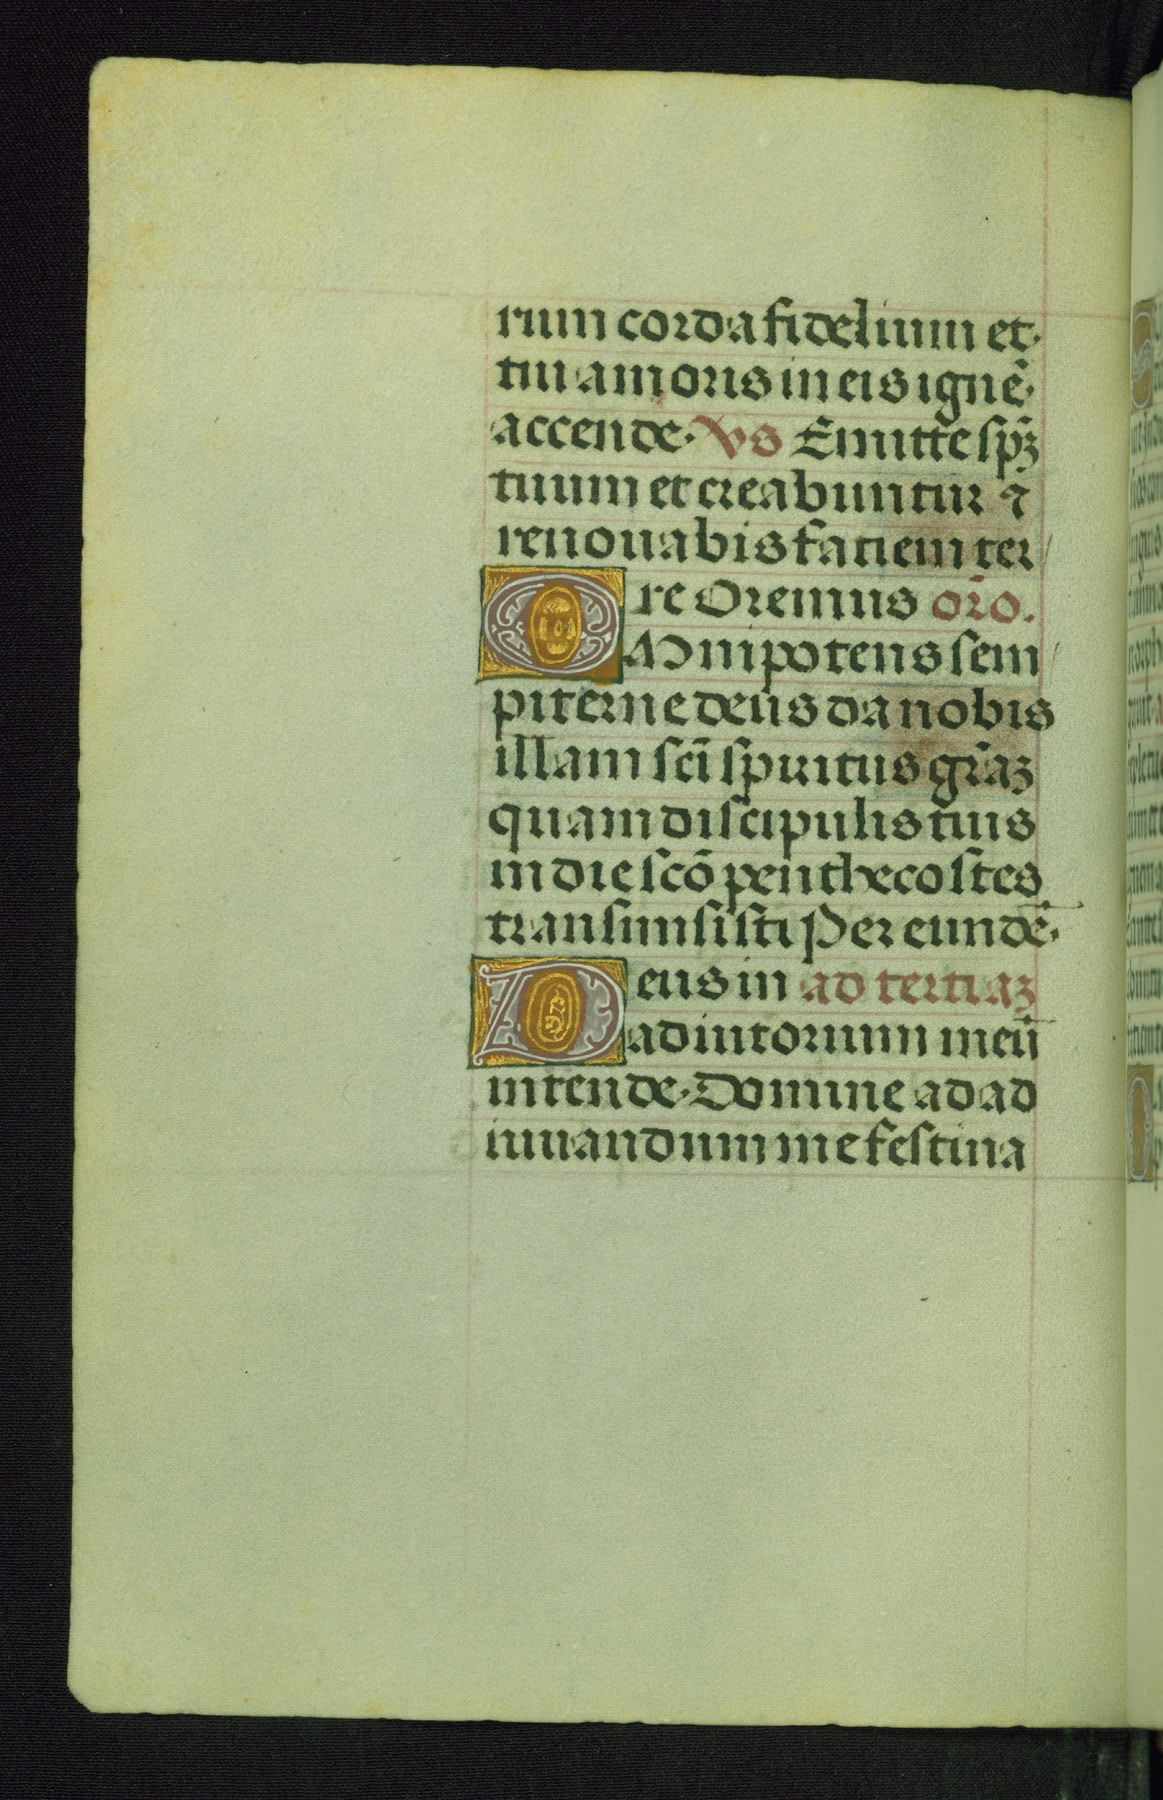 rum corda fidelium et
tui amoris in eis ignē
accende. Vs Emitte spz̄
tuum et creabuntur ⁊
renouabis faciem ter
re Oremus or̄o.
OMnipotens sem
piterne deus da nobis
illam sc̄i spiritus gr̄az
quam discipulis tuis
in die scō penthecostes
transmisisti Per eundē.
Deus in ad tertiaz
adiutorium meū
intende. Domine ad ad
iuuandum me festina